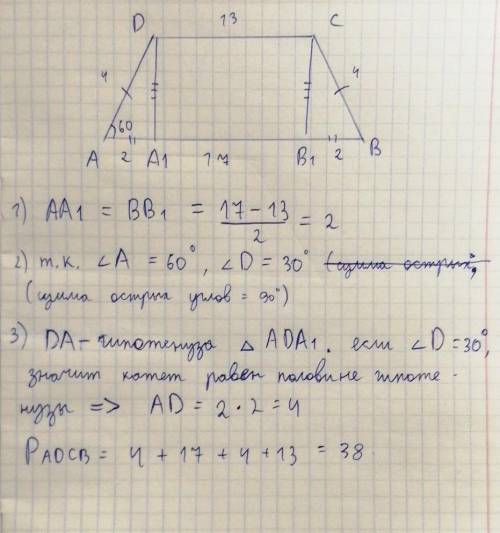 D 13 C
4 4
60
A 2 A1 17 B1 2 B
1) AA1 = BB1 = \frac{17-13}{2} = 2
2) т.к. ∠A = 60°, ∠D = 30° (сумма острых,
(сумма острых углов = 90°)
3) DA - гипотенуза △ ADA1. если ∠D = 30°,
значит катет равен половине гипоте-
нузы => AD = 2·2 = 4
PADCB = 4 + 17 + 4 + 13 = 38.